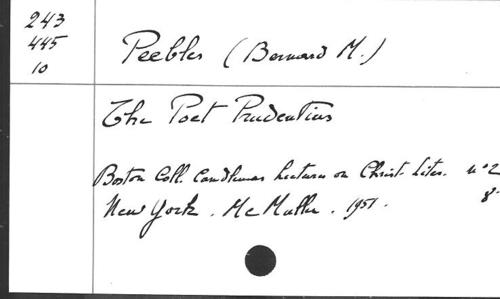 243
445
10
Peebles (Bernard M.)
The Poet Prudentius
Boston Coll. Candlemas Lectures on Christ. Liter. nº 2
8º
New York. Mc Mullen. 1951.